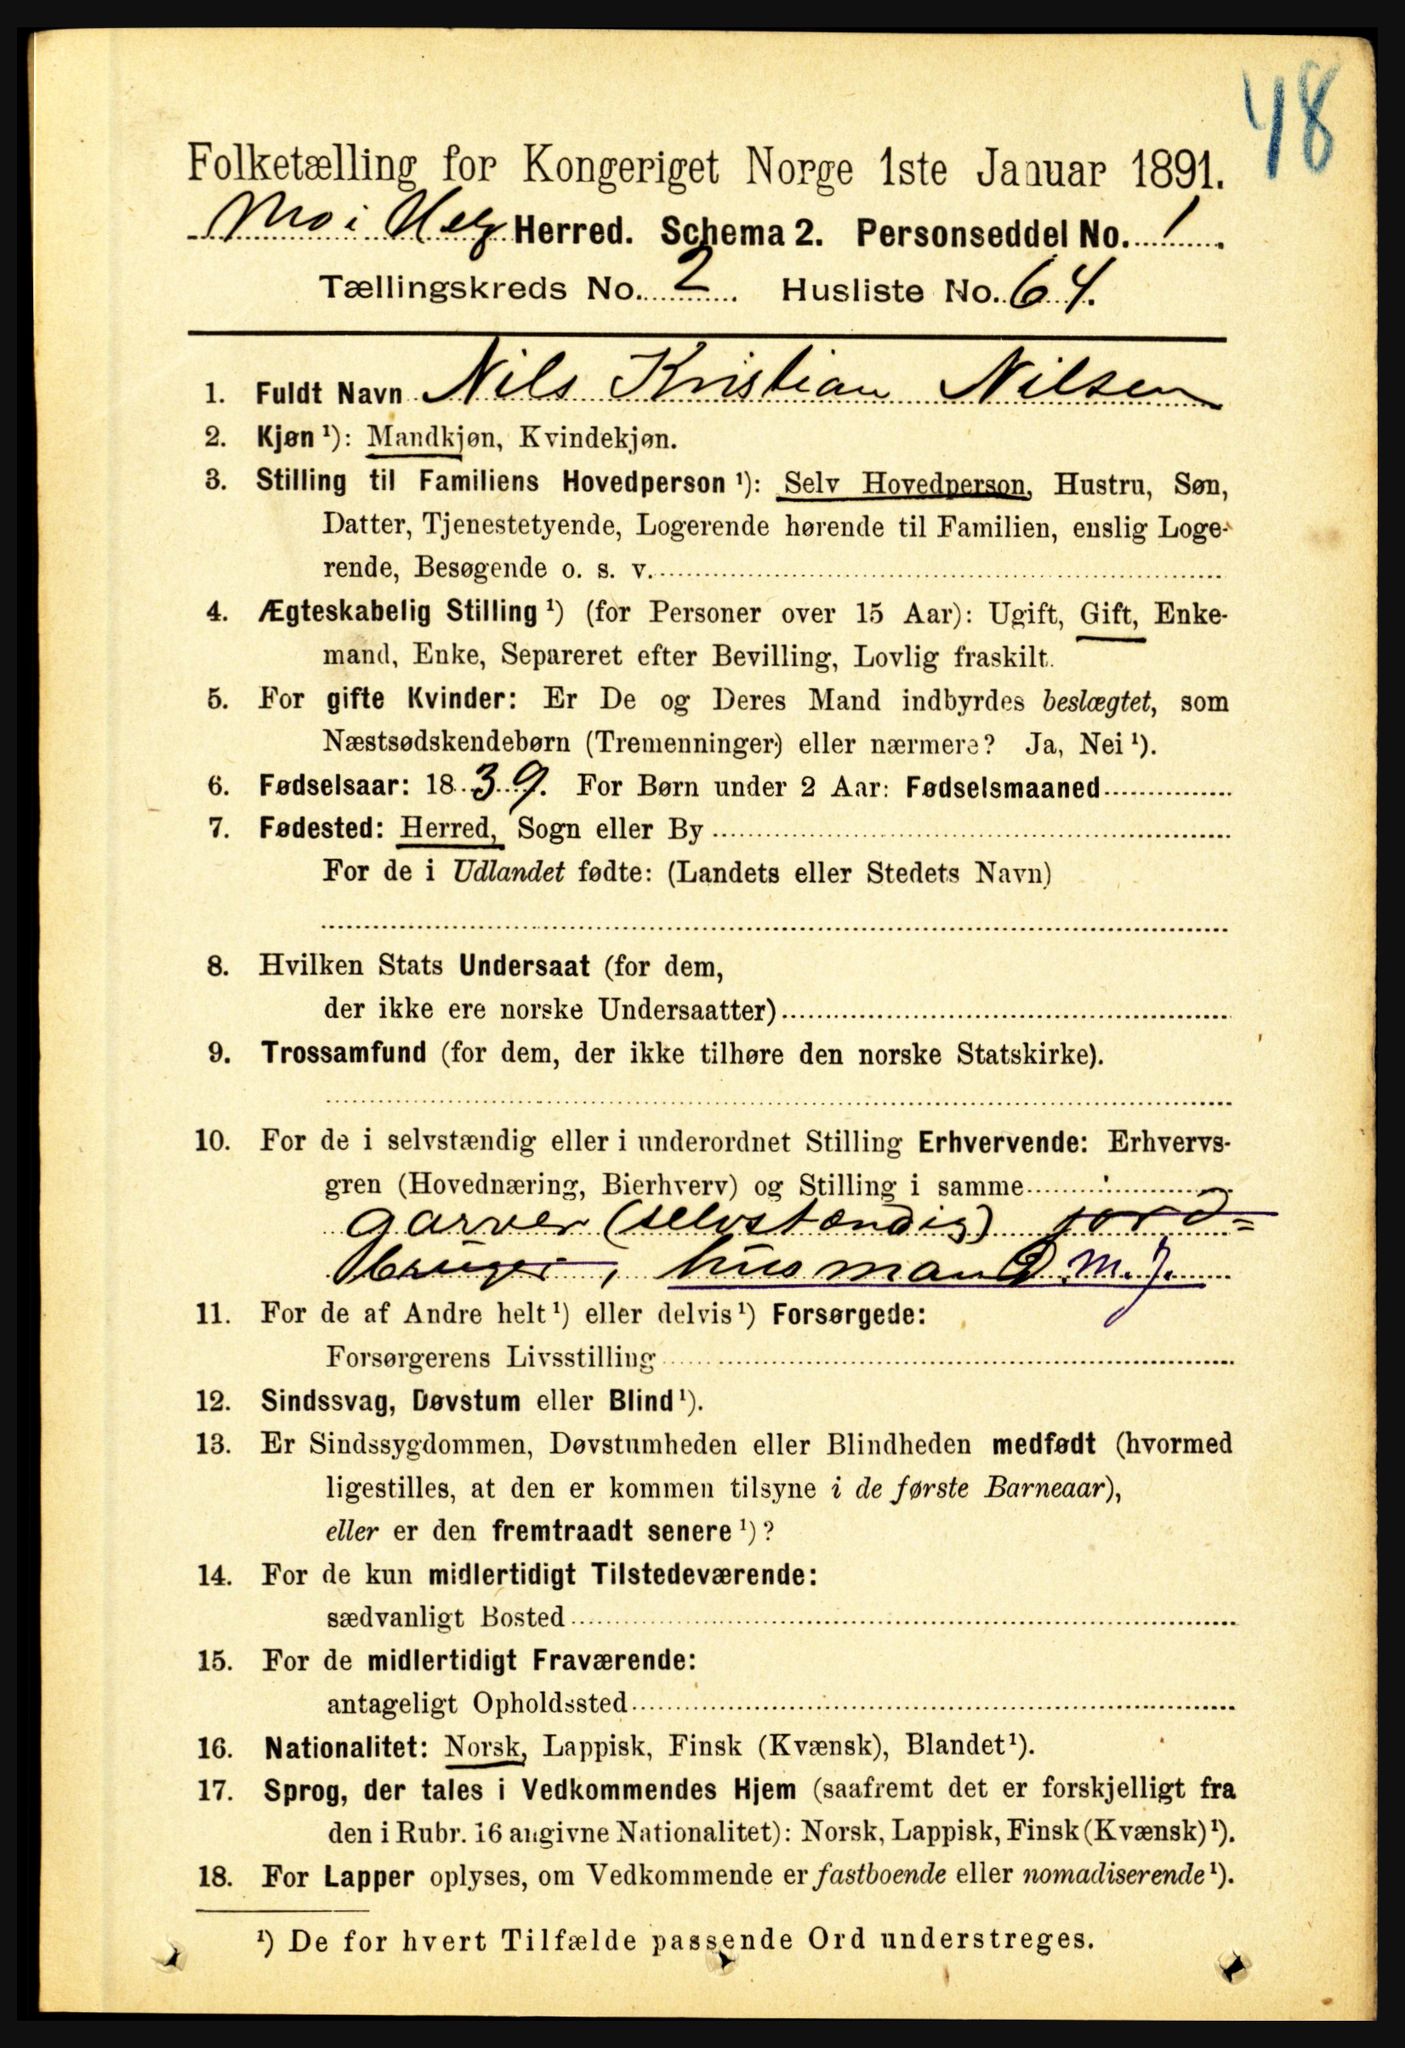 48
Folketælling for Kongeriget Norge 1ste Januar 1891.
Mo i Helg Herred. Schema 2. Personseddel No. 1.
Tællingskreds No. 2. Husliste No. 64.
1. Fuldt Navn Nils Kristian Nilsen
2. Kjøn ¹): Mandkjøn, Kvindekjøn.
3. Stilling til Familiens Hovedperson ¹): Selv Hovedperson, Hustru, Søn,
Datter, Tjenestetyende, Logerende hørende til Familien, enslig Loge-
rende, Besøgende o. s. v.
4. Ægteskabelig Stilling ¹) (for Personer over 15 Aar): Ugift, Gift, Enke-
mand, Enke, Separeret efter Bevilling, Lovlig fraskilt.
5. For gifte Kvinder: Er De og Deres Mand indbyrdes beslægtet, som
Næstsødskendebørn (Tremenninger) eller nærmere? Ja, Nei ¹).
6. Fødselsaar: 1839. For Børn under 2 Aar: Fødselsmaaned
7. Fødested: Herred, Sogn eller By
For de i Udlandet fødte: (Landets eller Stedets Navn)
8. Hvilken Stats Undersaat (for dem,
der ikke ere norske Undersaatter)
9. Trossamfund (for dem, der ikke tilhøre den norske Statskirke).
10. For de i selvstændig eller i underordnet Stilling Erhvervende: Erhvervs-
gren (Hovednæring, Bierhverv) og Stilling i samme
garver (selvstændig) jord=
bruger, husmand m. j.
11. For de af Andre helt ¹) eller delvis ¹) Forsørgede:
Forsørgerens Livsstilling
12. Sindssvag, Døvstum eller Blind ¹).
13. Er Sindssygdommen, Døvstumheden eller Blindheden medfødt (hvormed
ligestilles, at den er kommen tilsyne i de første Barneaar),
eller er den fremtraadt senere ¹)?
14. For de kun midlertidigt Tilstedeværende:
sædvanligt Bosted
15. For de midlertidigt Fraværende:
antageligt Opholdssted
16. Nationalitet: Norsk, Lappisk, Finsk (Kvænsk), Blandet ¹).
17. Sprog, der tales i Vedkommendes Hjem (saafremt det er forskjelligt fra
den i Rubr. 16 angivne Nationalitet): Norsk, Lappisk, Finsk (Kvænsk) ¹).
18. For Lapper oplyses, om Vedkommende er fastboende eller nomadiserende ¹).
¹) De for hvert Tilfælde passende Ord understreges.